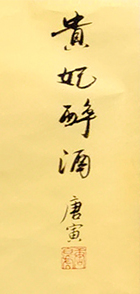 貴妃醉酒
唐寅